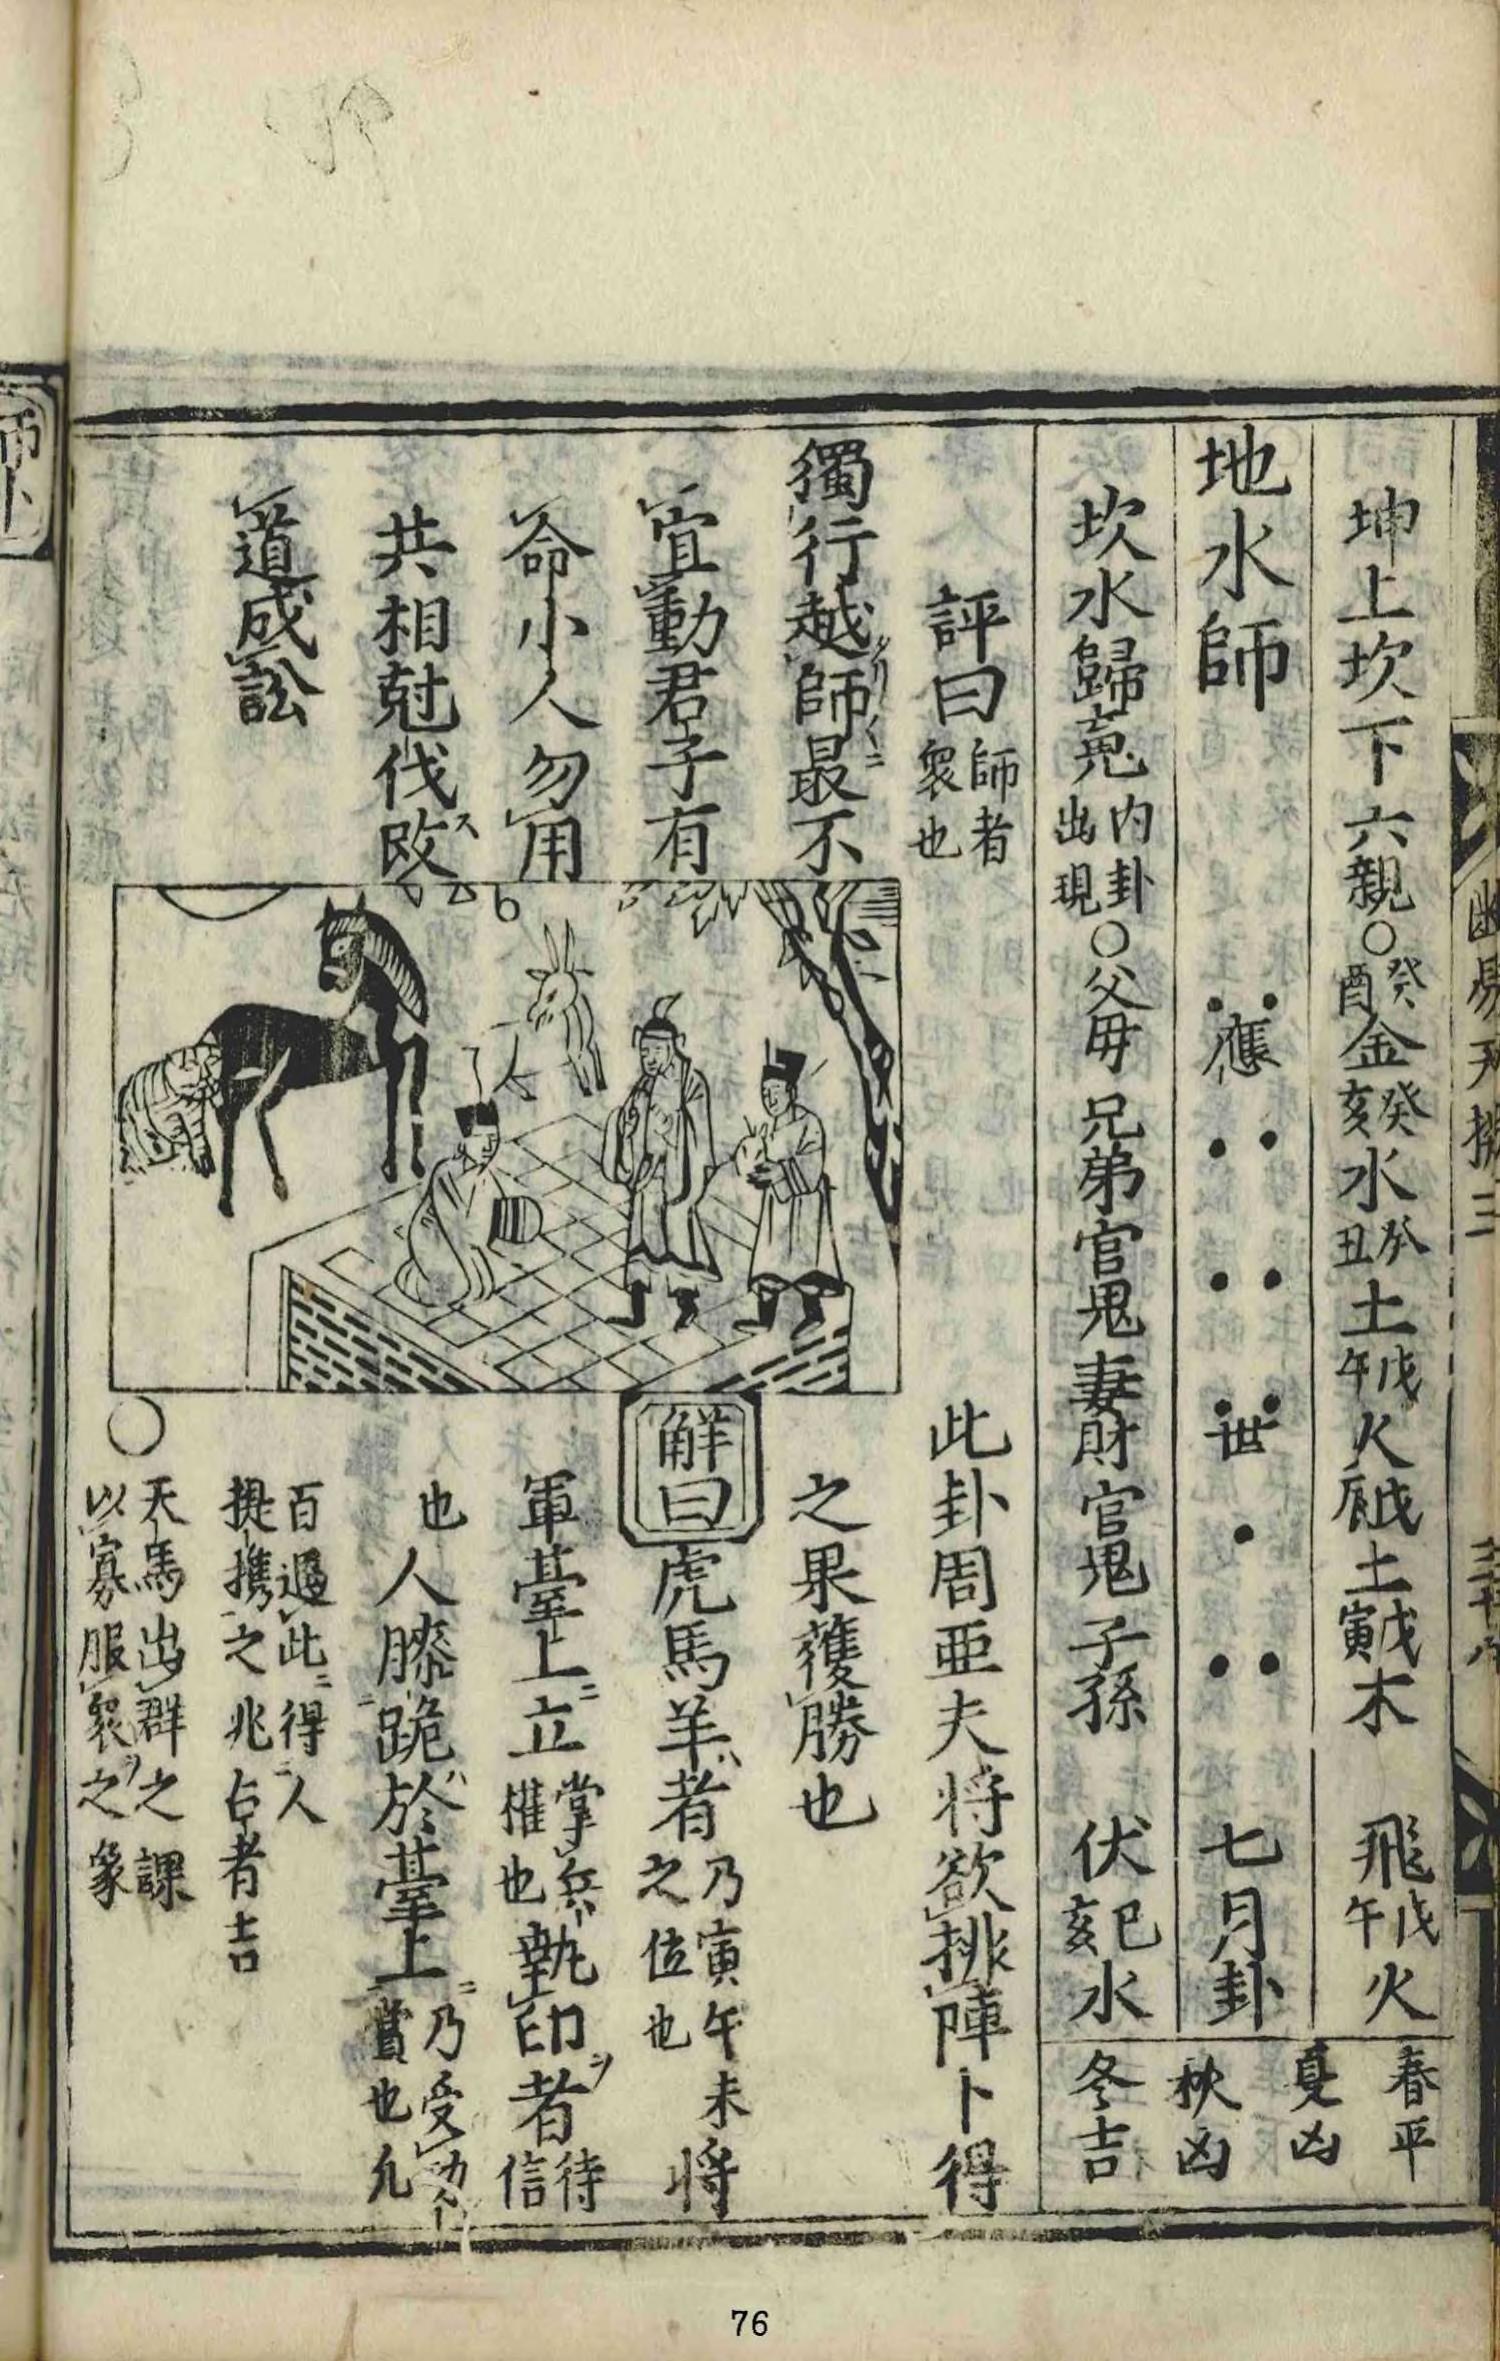 坤上坎下六親○癸酉金癸亥水癸丑土戊午火戊辰土戊寅木 飛戊午火
地水師 應 世 七月卦
坎水歸䰟内卦出現○父母兄弟官鬼妻財官鬼子孫 伏己亥水
春平
夏凶
秋凶
冬吉
評曰師者衆也
獨行越師最不
宜動君子有
命小人勿用
共相尅伐改ス
道成訟
此卦周亜夫将欲排陣卜得
之果獲勝也
解曰虎馬羊者乃寅午未之位也将
軍臺上立掌兵權也執印者待信
也人膝跪於臺上乃受賞也凡
百遇此得人提携之兆占者吉
○天馬出群之課以寡服衆之象
76